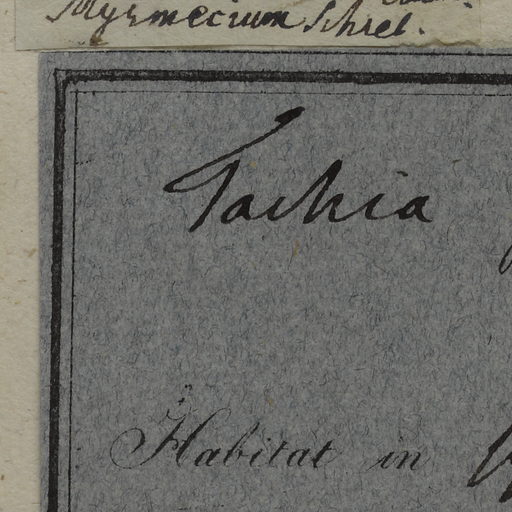 Myrmecium Schreb.
Tachia
Habitat in